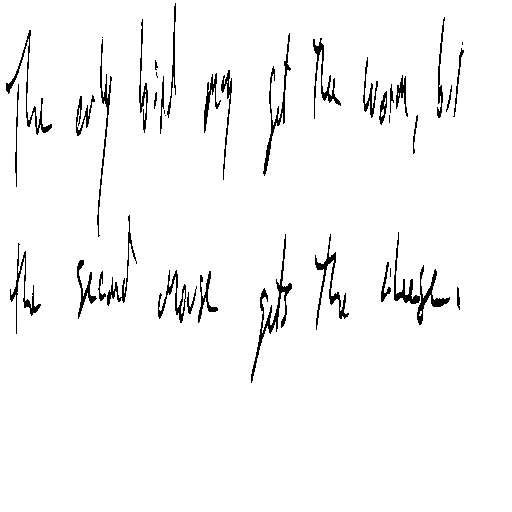 The early bird may get The worm, but
the second mouse gets The cheese.